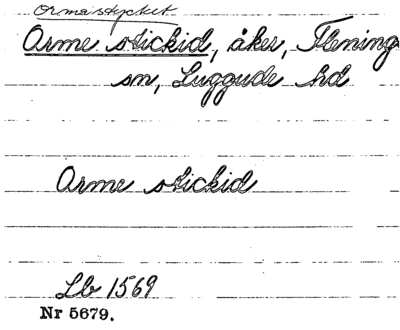 Ormastycket
Orme stickid, åker, Flening
sn, Luggude hd
Orme stickid
Lb 1569
Nr 5679.